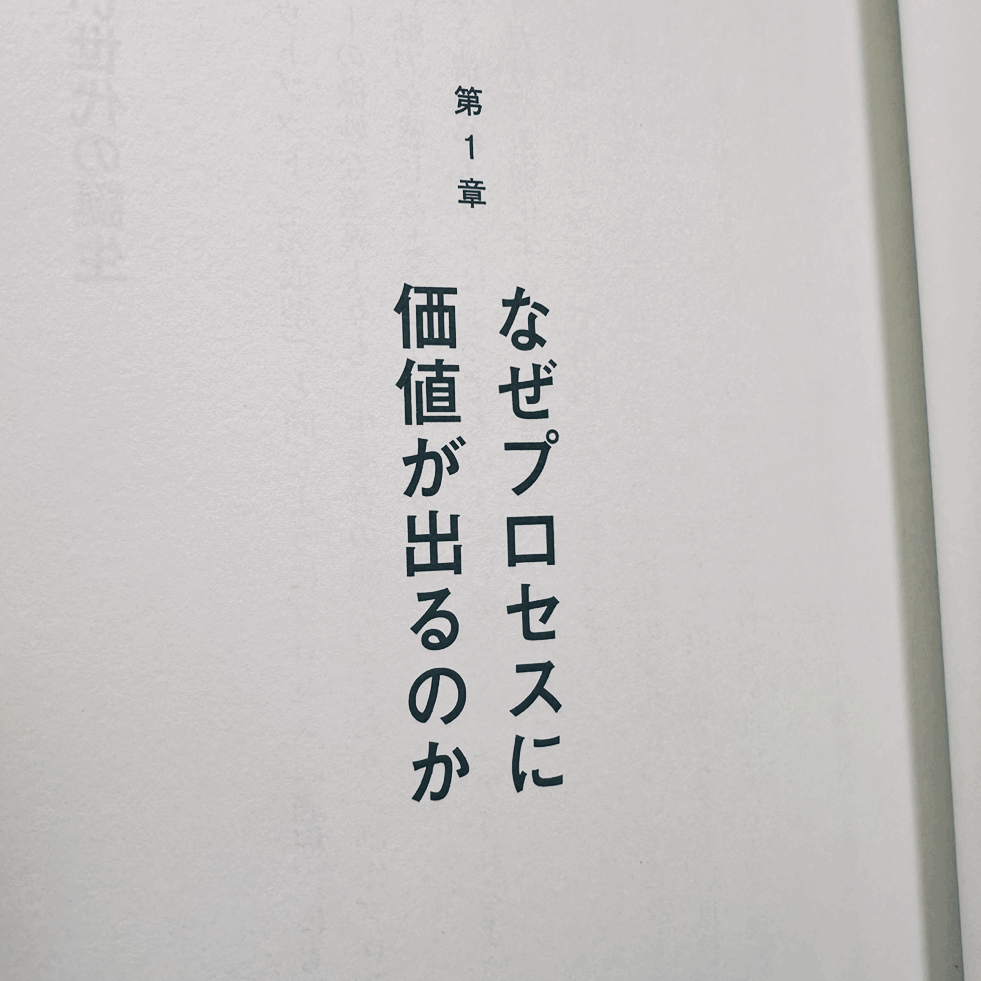 第1章
なぜプロセスに
価値が出るのか